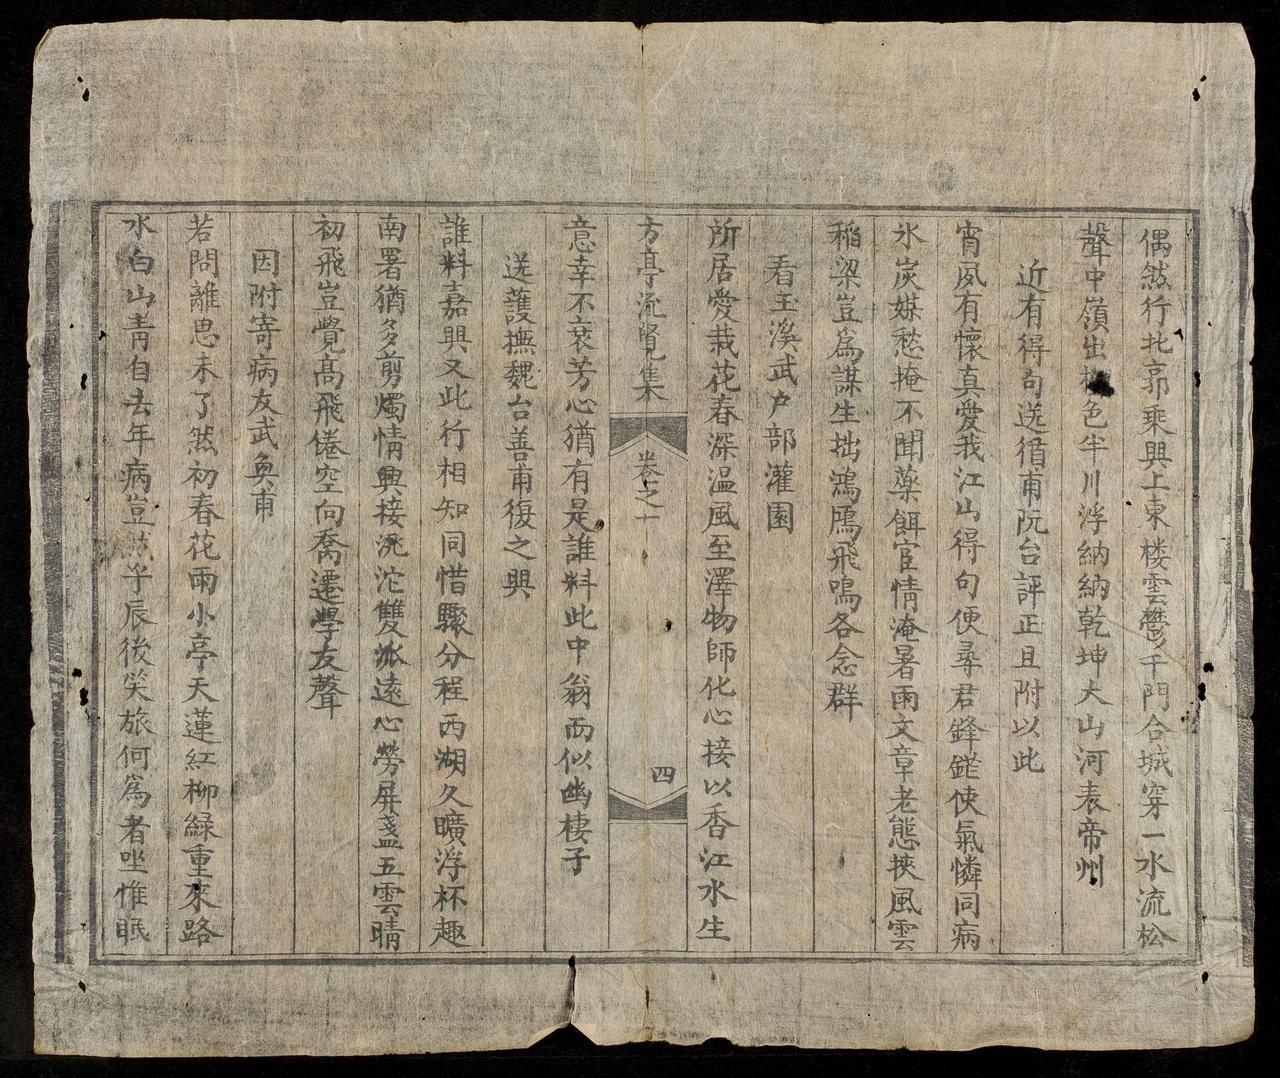 偶然行北郭乘興上東楼雲鬱千門合城穿一水流松
聲中嶺出 色半川浮納納乾坤大山河表帝州
近有得句送循甫阮台評正且附以此
宵夙有懷真愛我江山得句便尋君鋒鋩使氣憐同病
氷炭媒愁掩不聞藥餌宦情淹暑雨文章老態挾風雲
稲梁豈為謀生拙鴻鴈飛鳴各念群
看玉溪武户部灌園
所居愛栽花春深温風至澤物師化心接以香江水生
方亭流覽集 卷之一 四
意幸不衰芳心猶有是誰料此中翁而似幽棲子
送護撫魏台善甫復之興
誰料嘉興又此行相知同惜驟分程西湖久曠浮杯趣
南署猶多剪燭情興接沅沱雙派遠心勞屏盞五雲晴
初飛豈覺高飛倦空向喬遷學友聲
因附寄病友武奐甫
若問離思未了然初春花雨小亭天蓮紅柳緑重來路
水白山青自去年病豈 乎辰後笑旅何為者坐惟眠